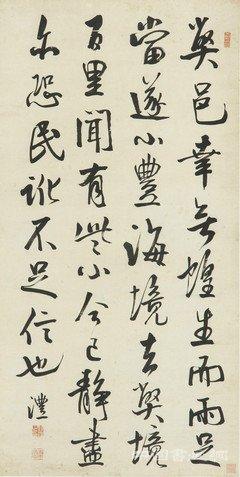 弊邑幸無蝗生而雨足
當遂小豐海境去弊境
百里聞有些小今已靜盡
亦恐民訛不足信也 澧